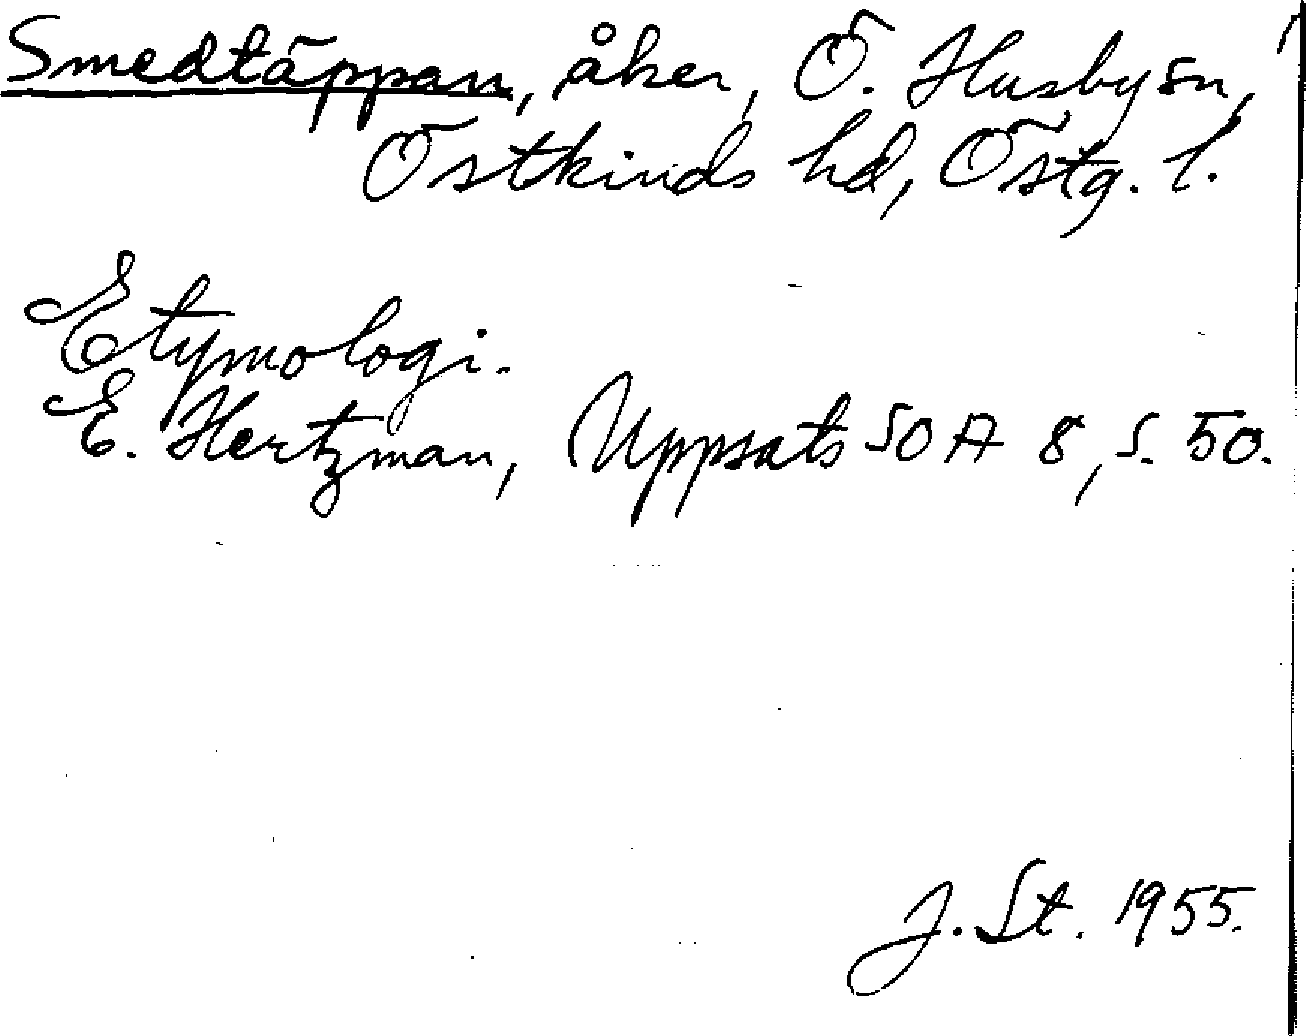 Smedtäppan, åker, Ö. Husby sn,
Östkinds hd, Östg. l.
Etymologi.
E. Hertzman, Uppsats SOA 8, s. 50.
J. St. 1955.